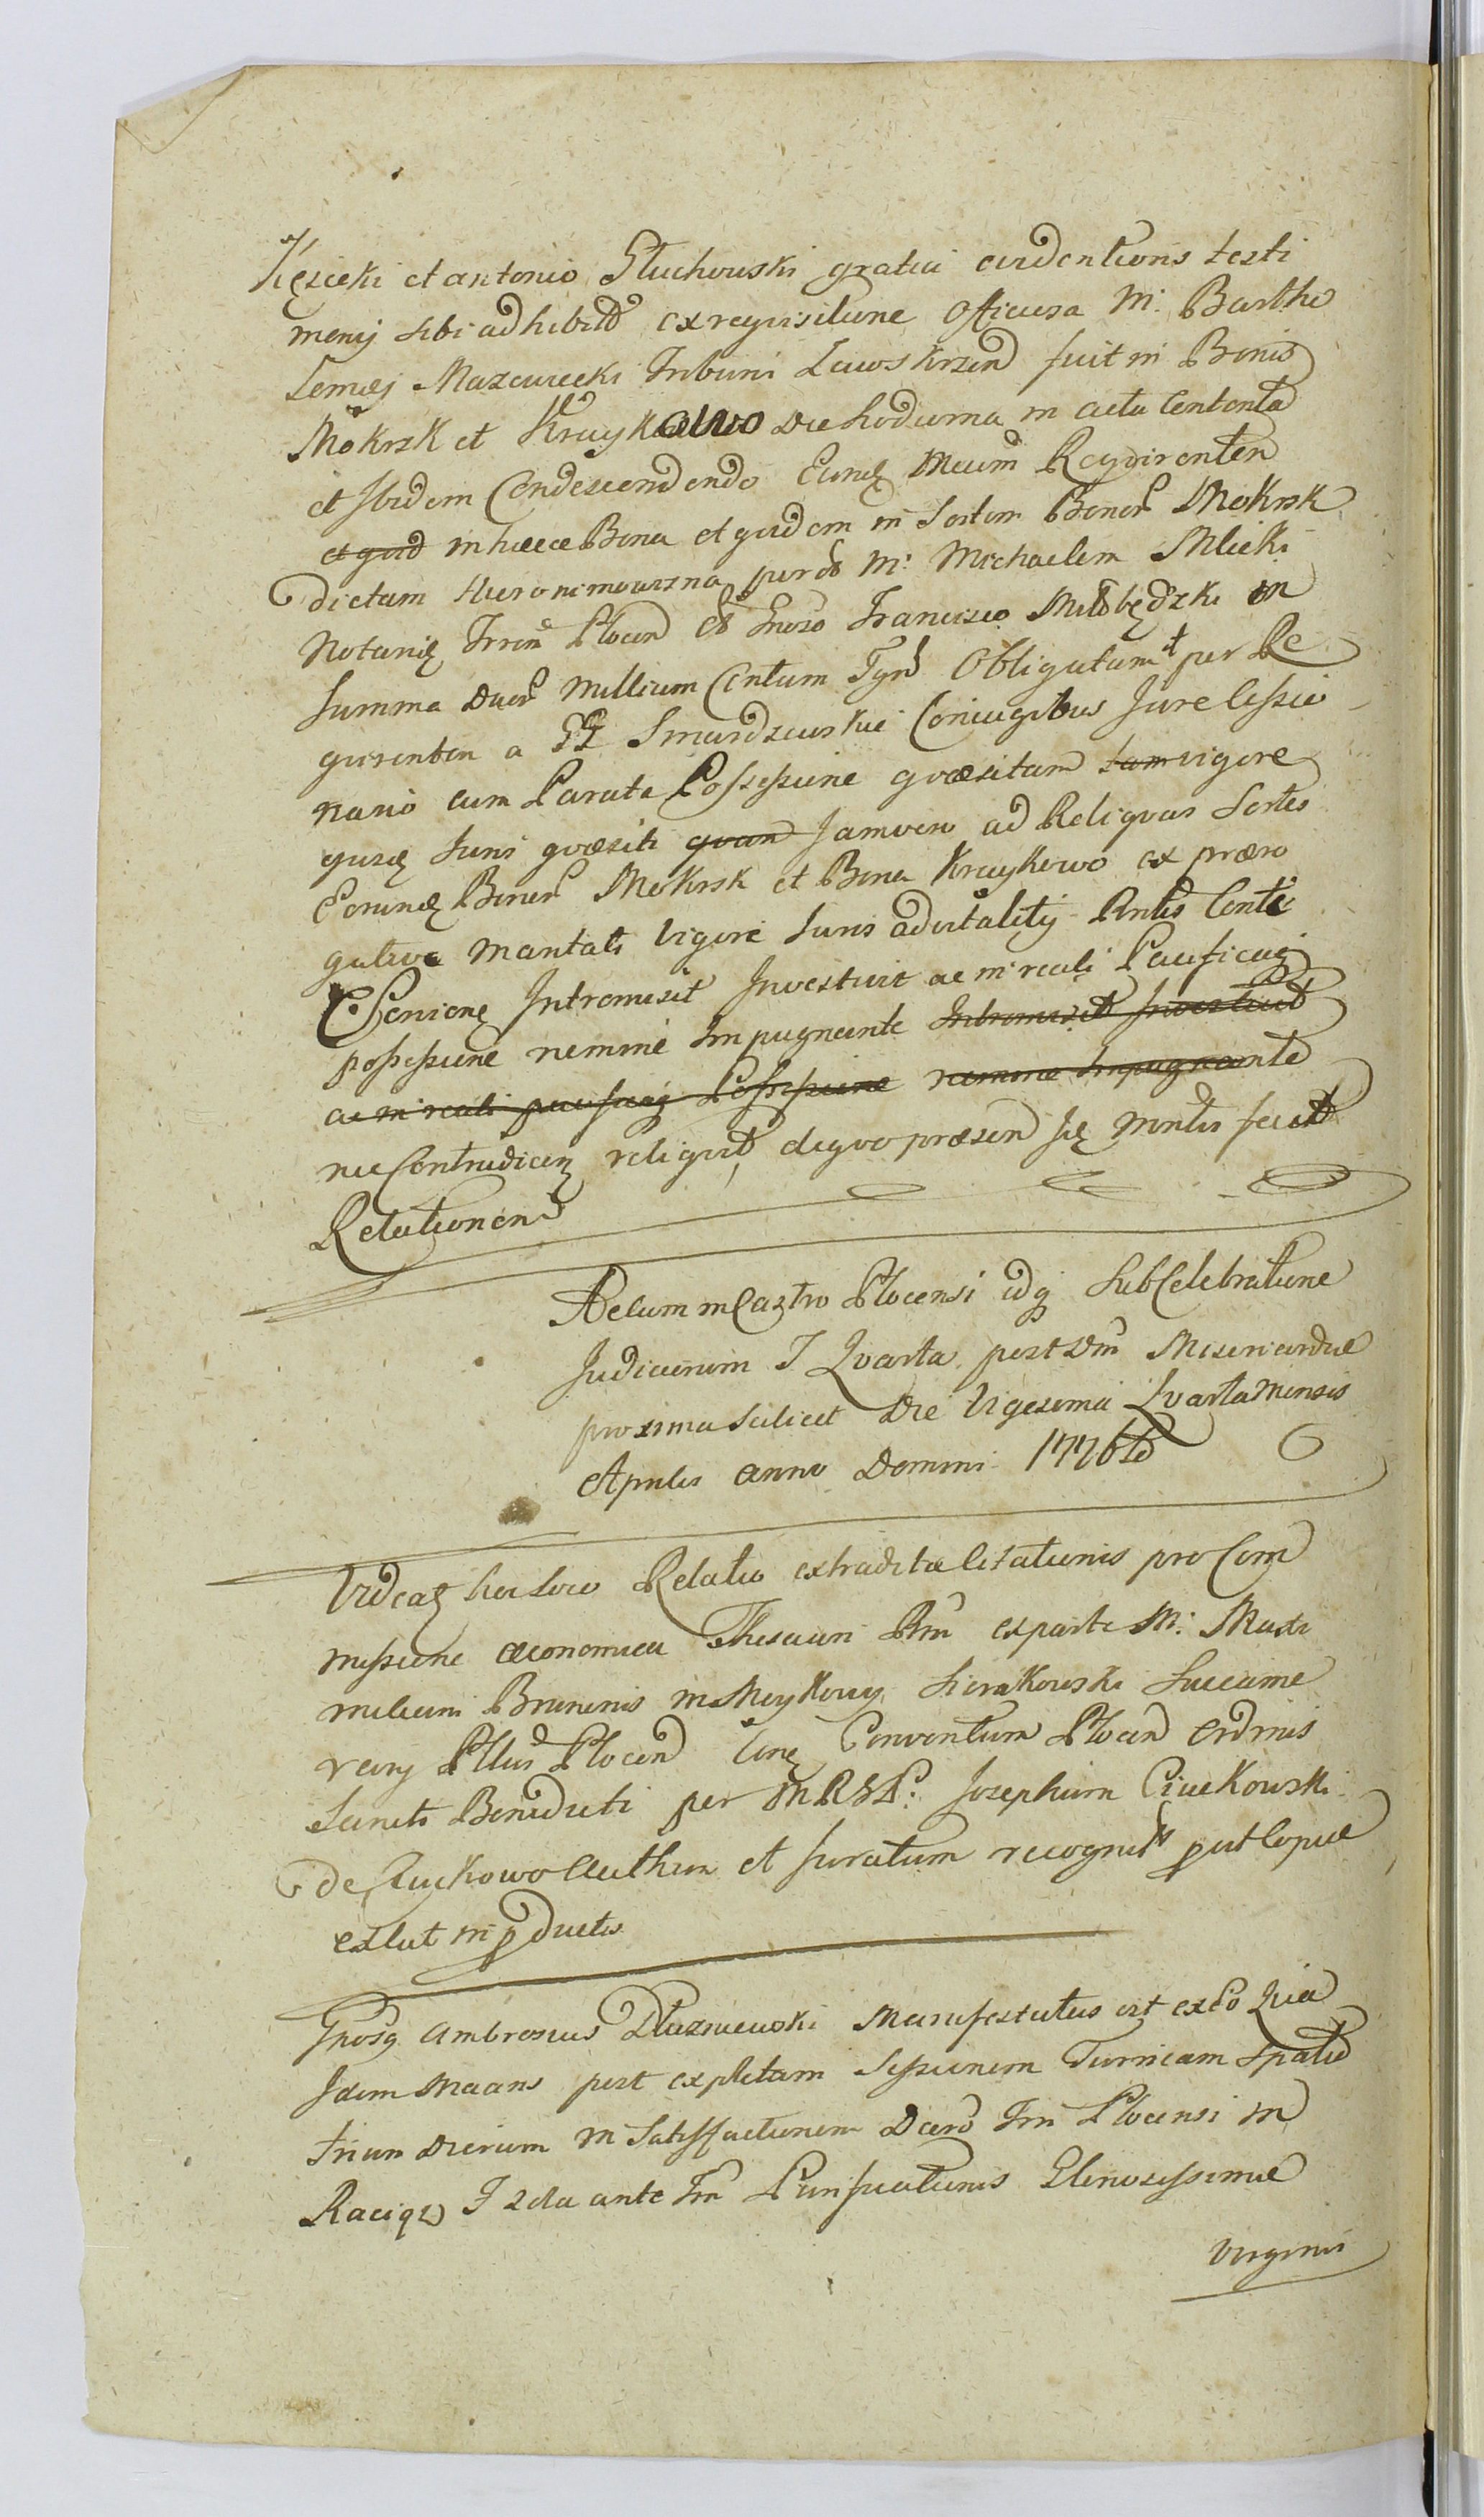 Kęsicki et antonio Głuchowski gratia evidentioris testi
monij sibi adhibitt exrequisitione Officiosa M: Bartho
lomei Mazowiecki Tribuni Zawskrzen fuit in Bonis
Mokrsk et Kraykowo Die hodierna in actu Contenta
et Ibidem Condescendendo Eundę Mcum Requirenten
et quid in haece Bona et quidem in Sortem Bonor Mokrsk
dictam Hieronimowizna per M: Michaelem Mlicki
Notariu Trrem Plocen Gnoso Francisco Milobędzki in
Summa Duor Millium Centum Tynf Obligatam per Re
quirenten a GG Smardzewskie Coniugibus Jure Cessio
nario cum Parata Possessione quaesitam tam vigore
ejusdę Juris quaesiti quam Jamvero ad Reliquas Sortes
Eorundę Bonor Mokrsk et Bona Kraykowo ex praero
gativa Mantali Vigore Juris advitalitij Antis Conte
Csenionę Intromisit Investivit ac in reali Pacificaq
possessione nemine Impugnante Intromisit Investivit
ac in reali pacificaq Possessione nemine Impugnante
nec Contradicen reliquit, deqvo praesen Suę Mentis fecit
Relationem
Actum in Castro Plocensi idq Sub Celebratione
Judiciorum F Qvarta post Dm Misericordiae
proxima scilicet Die Vigesima Qvarta Mensis
Aprilis anno Domini 1776to
Videaę hoc loco Relatio extraditae Citationis pro Com
missione oeconomica Thesauri Rni ex parte M: Maxi
miliani Brunonis in Moykowy Sierakowski Succame
rary Pllus Plocen Conę Conventum Plocen Ordinis
Sancti Benedicti per MRGP: Josephum Ciuckowski
de Zuckowo authen et Juratum recognit put Copiae
exlat in pductis
Gnosq Ambrosius Dłuzniewski Manifestatus est ex Eo Quia
Idem Maans post expletam Sessionem Turricam Spatio
trium Dierum in Satisfactionem Dcero Trri Plocensi in
Raciąz F 2da ante Fm Purificationis Glonosissimae
Virginis